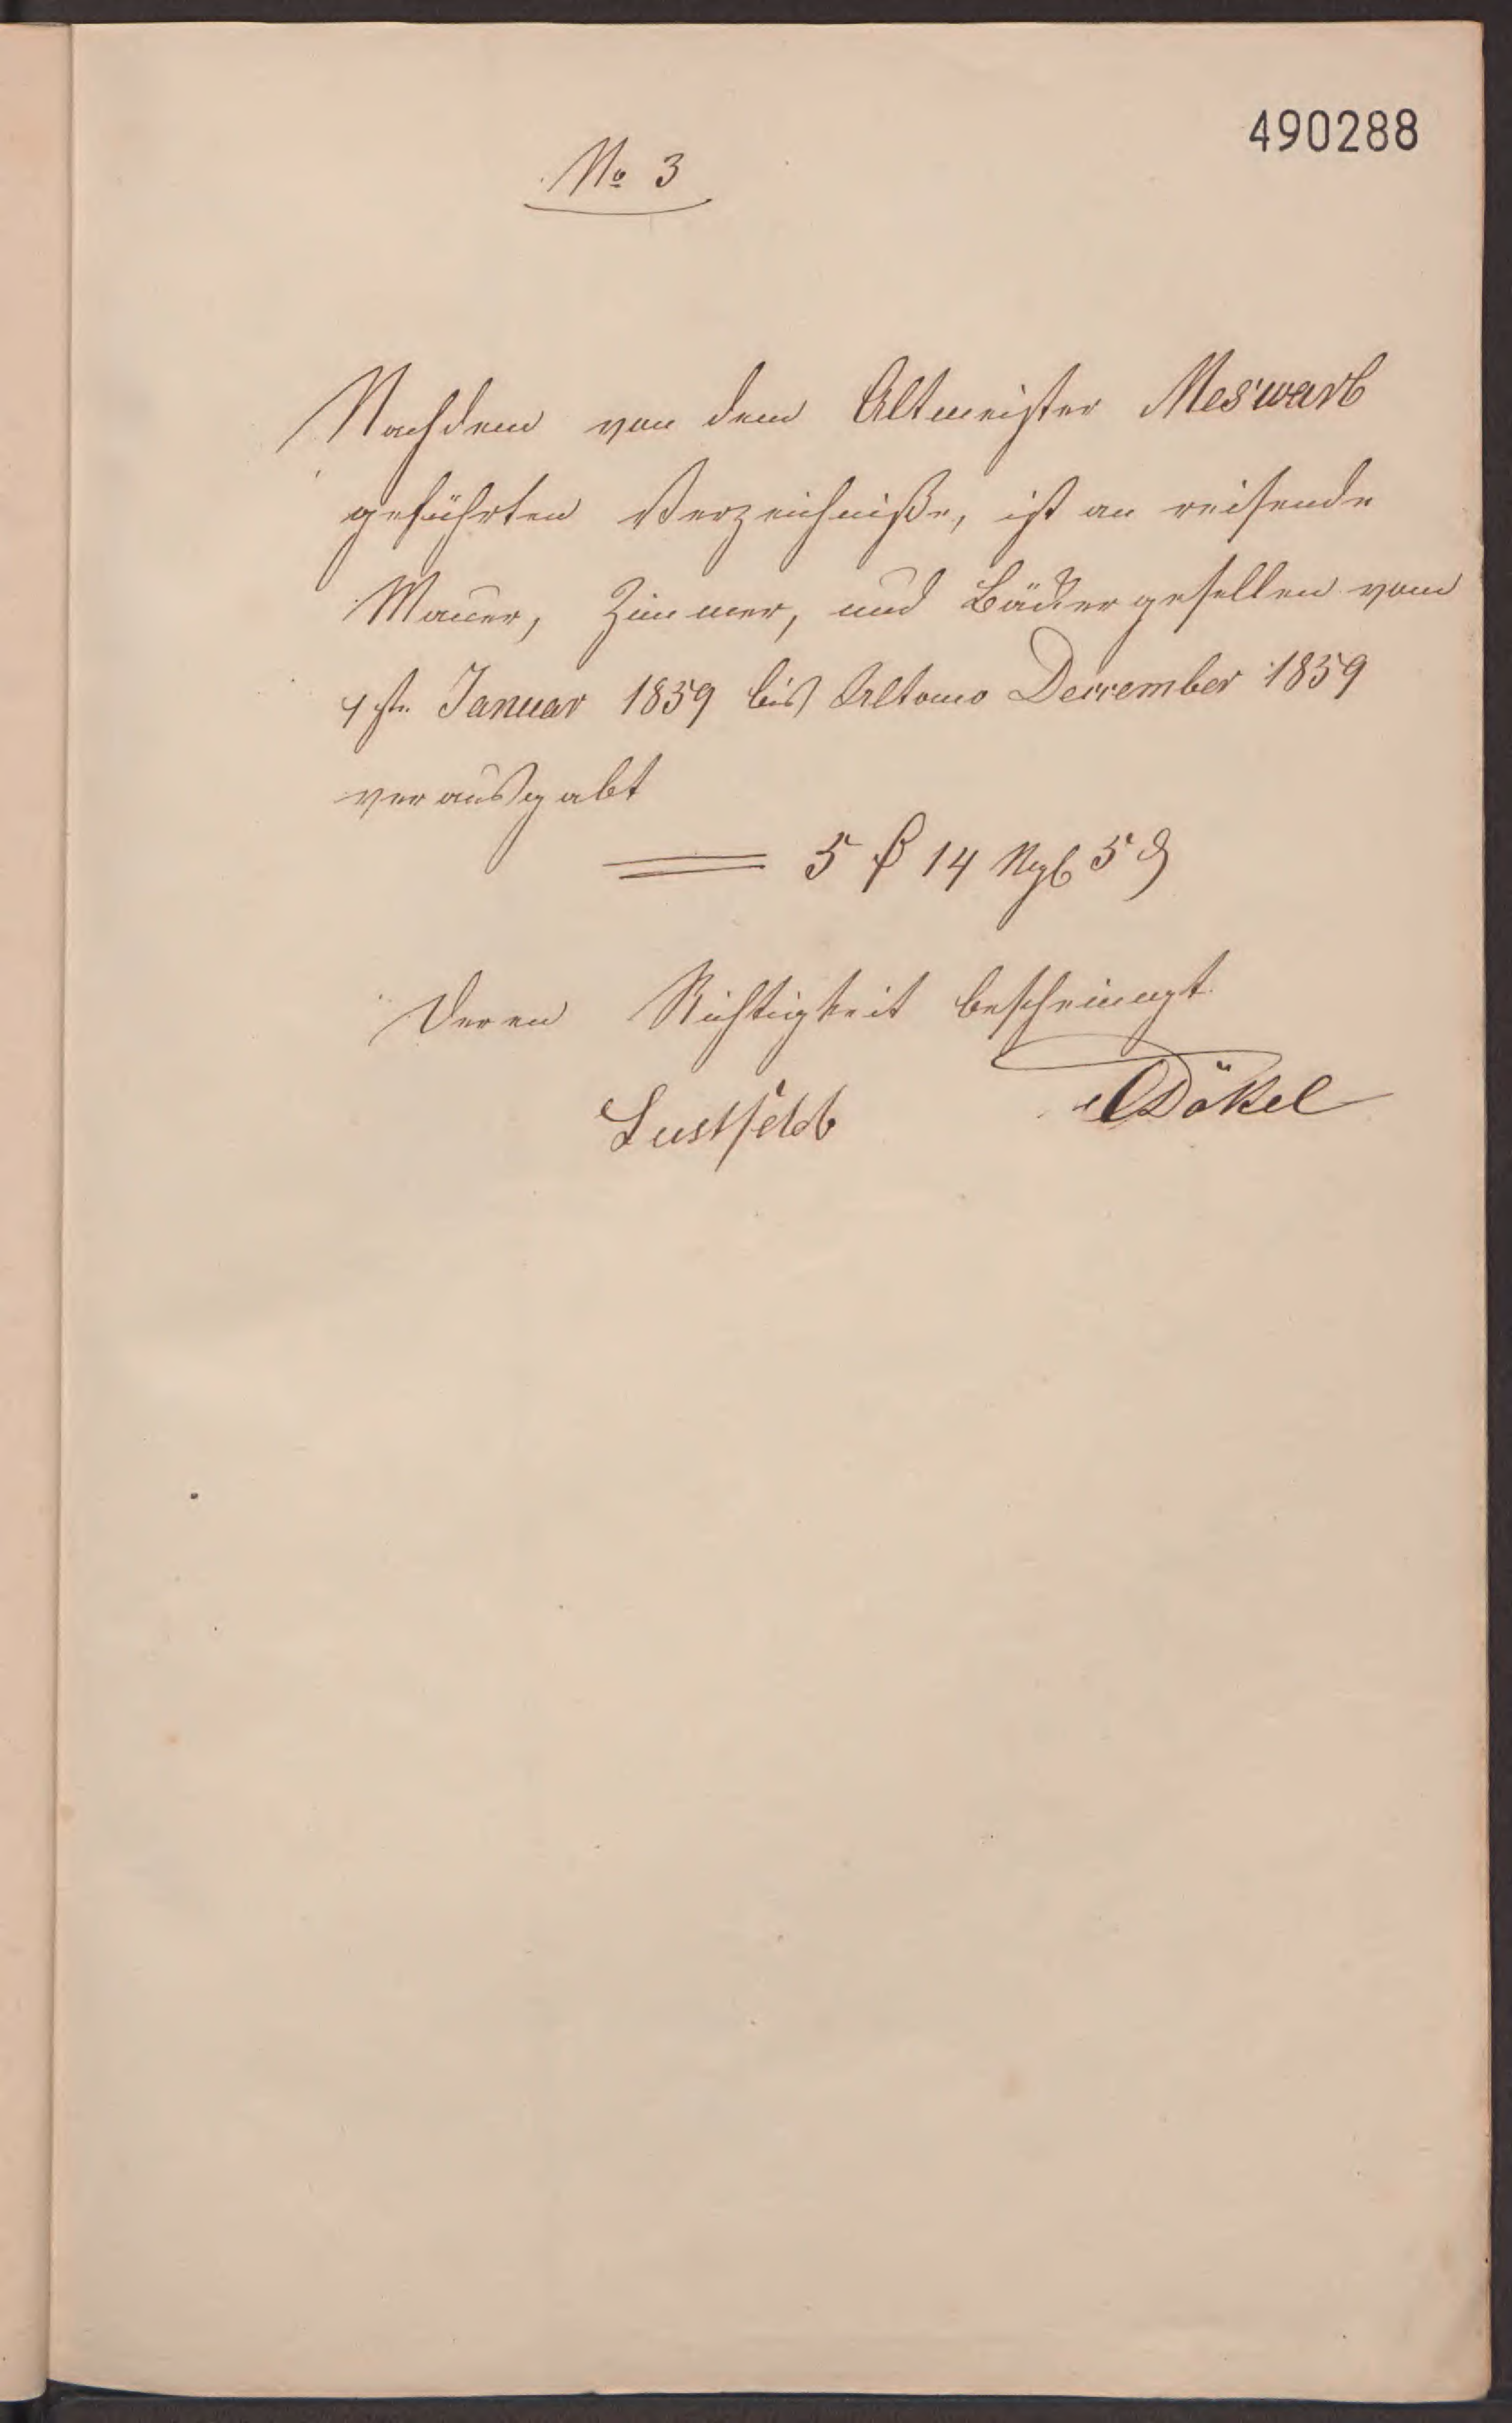 490288
No 3
Nachdem von dem Altmeister Meswarb
geführten Verzeichniße, ist an reisende
Mauer, Zimmer, und Bäckergesellen vom
1ste Januar 1859 bis Ultomo December 1859
verausgabt
5 ₰ 14 Ngl 5 ₰
Deren Richtigkeit bescheinigt
Lustfeld Dökel